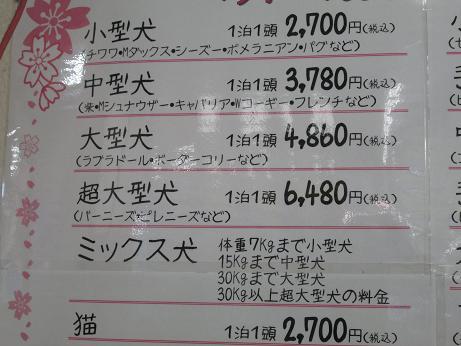 小型犬 1泊1頭 2,700円(税込)
(チワワ・Mダックス・シーズー・ポメラニアン・パグなど)
中型犬 1泊1頭 3,780円(税込)
(柴・Mシュナウザー・キャバリア・Wコーギー・フレンチなど)
大型犬 1泊1頭 4,860円(税込)
(ラブラドール・ボーダーコリーなど)
超大型犬 1泊1頭 6,480円(税込)
(バーニーズ・ピレニーズなど)
ミックス犬 体重7Kgまで小型犬
15Kgまで中型犬
30Kgまで大型犬
30Kg以上超大型犬の料金
猫 1泊1頭 2,700円(税込)